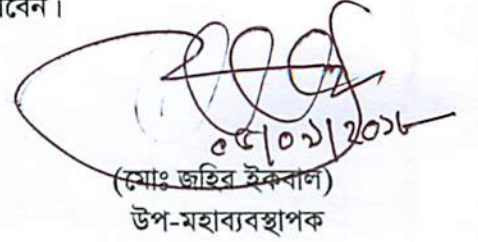 বেন।
০৫/০১/২০১৮
(মোঃ জহির ইকবাল)
উপ-মহাব্যবস্থাপক